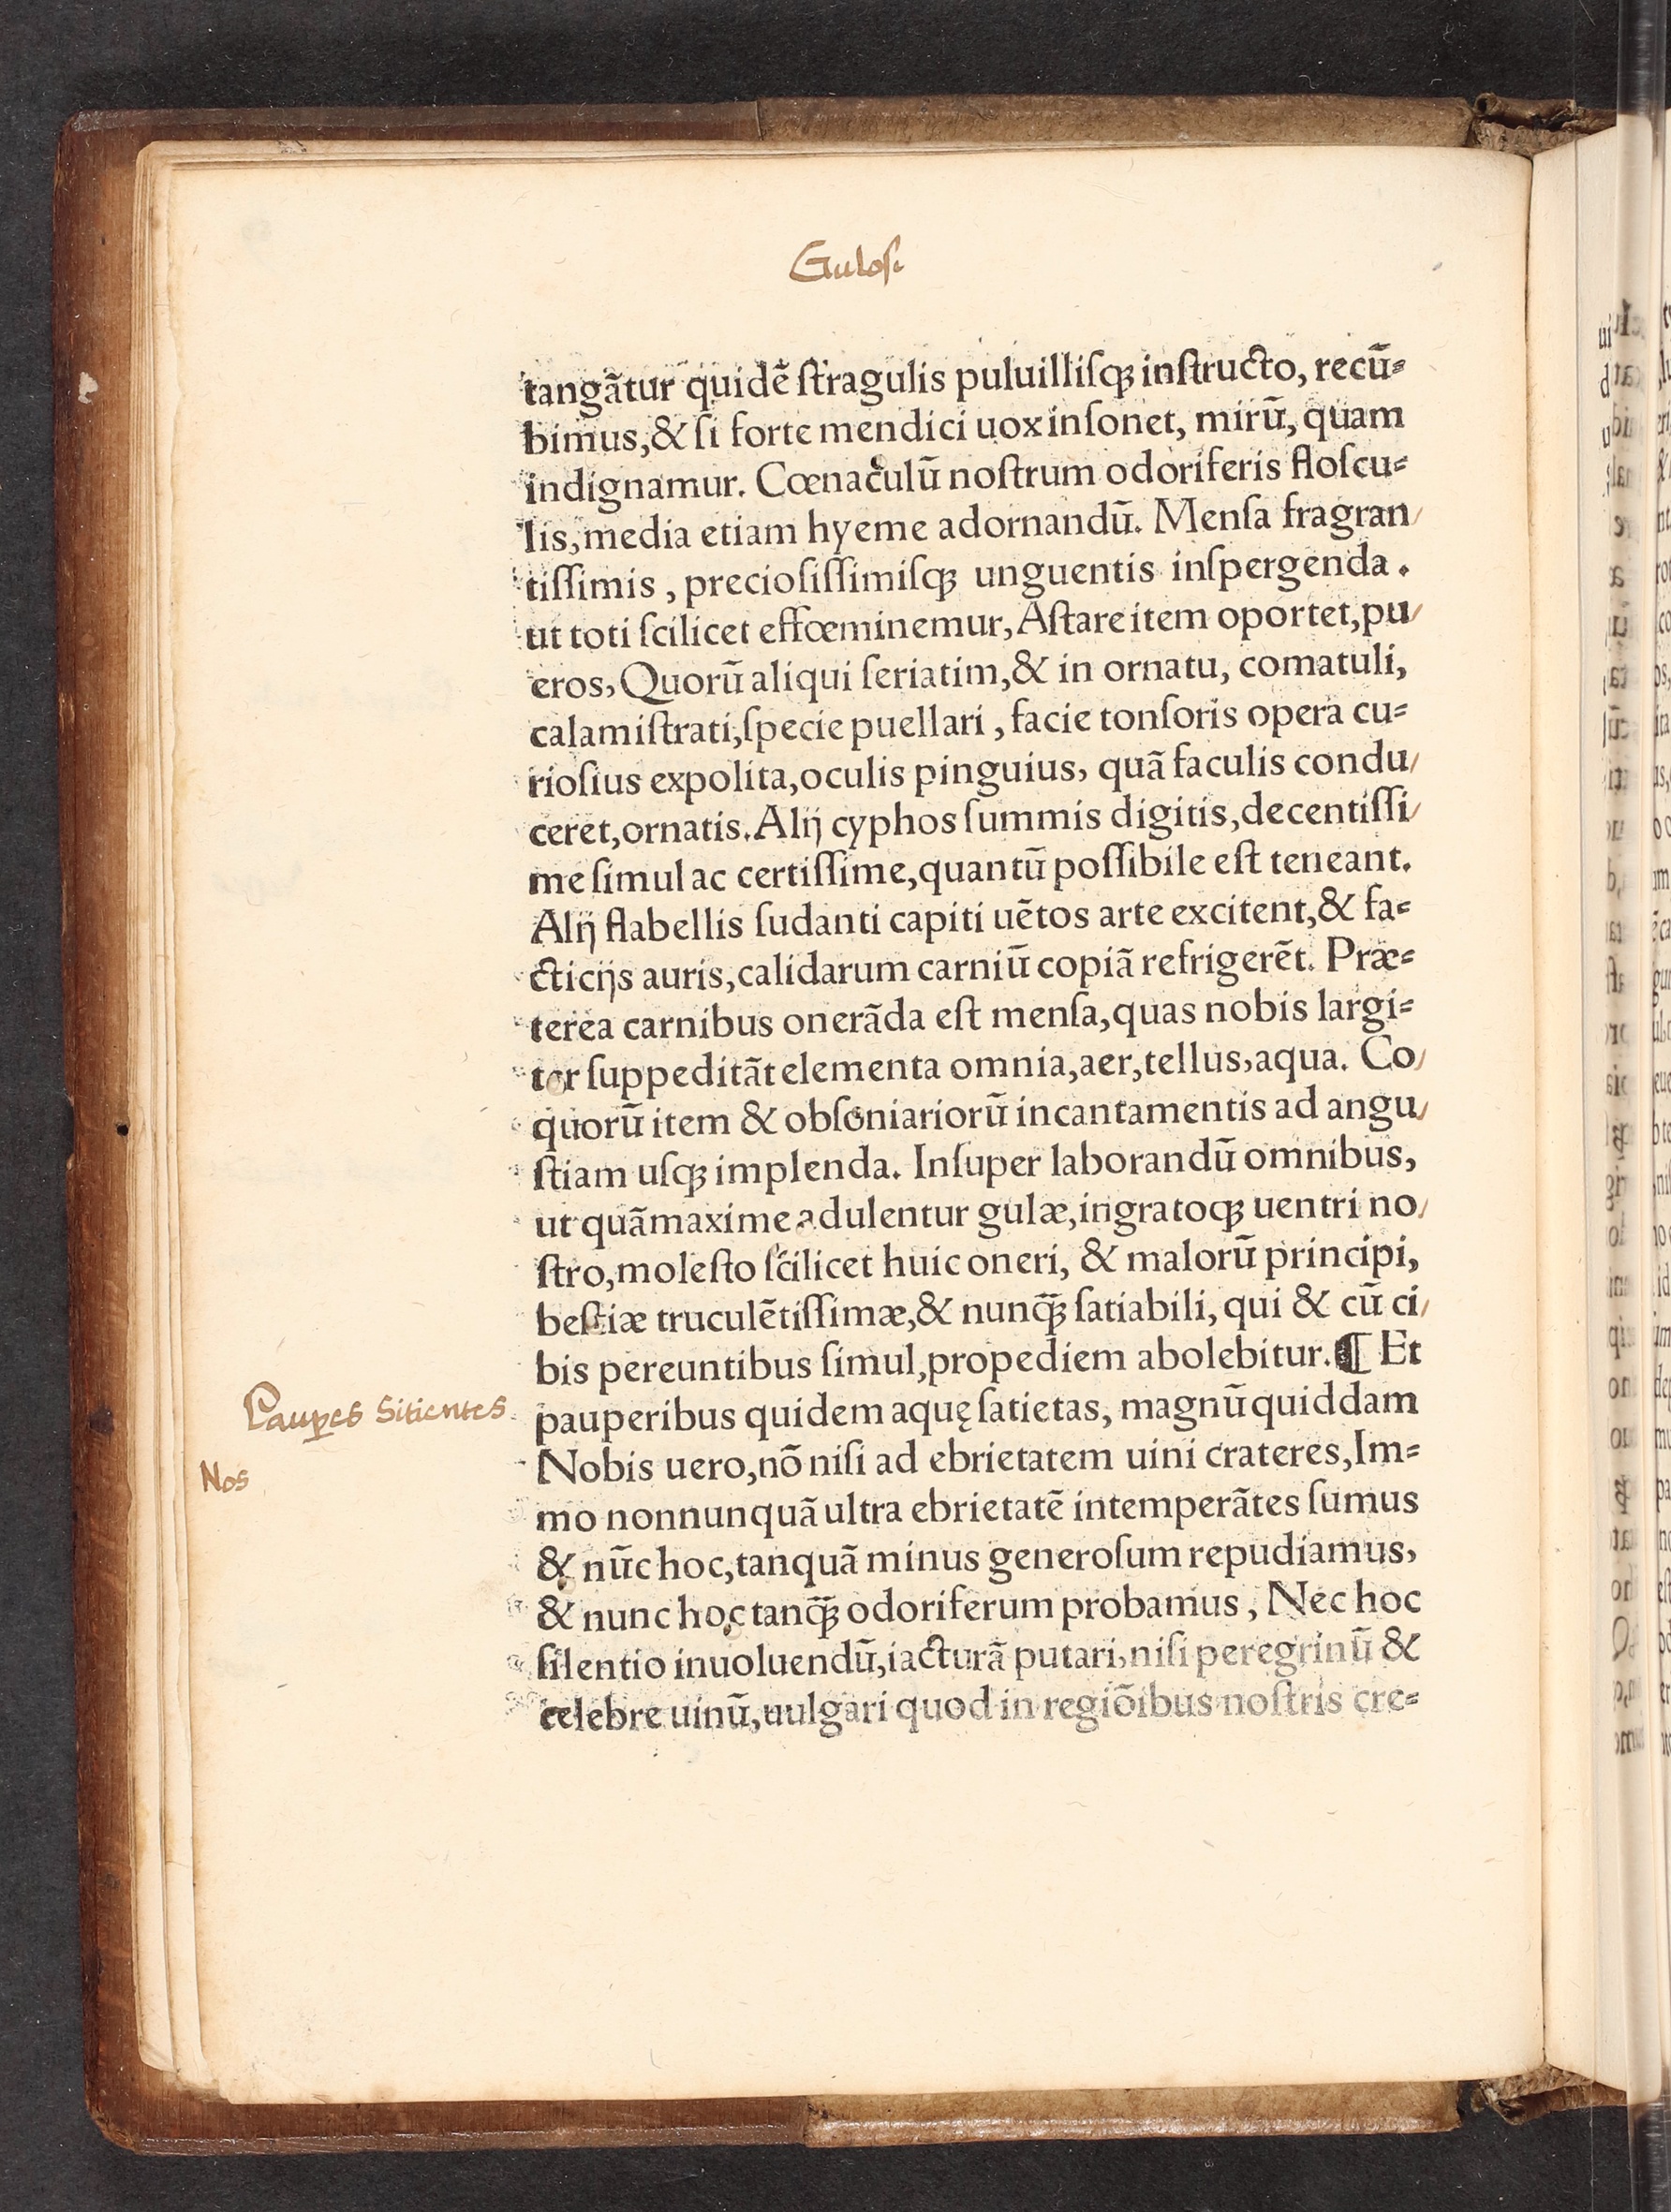 Gulosi
tangãtur quidẽ ſtragulis puluilliſq; inſtructo, recũ=
bimus,& ſi forte mendici uox inſonet, mirũ, quam
indignamur. Cœnaculũ noſtrum odoriferis floſcu=
lis, media etiam hyeme adornandũ. Menſa fragran/
tiſſimis, precioſiſſimiſq; unguentis inſpergenda.
ut toti ſcilicet effœminemur, Aſtare item oportet, pu/
eros, Quorũ aliqui ſeriatim,& in ornatu, comatuli,
calamiſtrati, ſpecie puellari, facie tonſoris opera cu=
rioſius expolita, oculis pinguius, quã faculis condu/
ceret, ornatis. Alij cyphos ſummis digitis, decentiſſi/
me ſimul ac certiſſime, quantũ poſſibile eſt teneant.
Alij flabellis ſudanti capiti uẽtos arte excitent,& fa=
cticijs auris, calidarum carniũ copiã refrigerẽt. Præ=
terea carnibus onerãda eſt menſa, quas nobis largi=
ter ſuppeditãt elementa omnia, aer, tellus, aqua. Co/
quorũ item & obſoniariorũ incantamentis ad angu/
ſtiam uſq; implenda. Inſuper laborandũ omnibus,
ut quãmaxime adulentur gulæ, ingratoq; uentri no/
ſtro, moleſto ſcilicet huic oneri, & malorũ principi,
beſtiæ truculẽtiſſimæ,& nunq̃; ſatiabili, qui & cũ ci/
bis pereuntibus ſimul, propediem abolebitur. ¶ Et
Paup̱es Sitientes
pauperibus quidem aquę ſatietas, magnũ quiddam
Nos
Nobis uero, nõ niſi ad ebrietatem uini crateres, Im=
mo nonnunquã ultra ebrietatẽ intemperãtes ſumus
& nũc hoc, tanquã minus generoſum repudiamus,
& nunc hoc tanq̃; odoriferum probamus, Nec hoc
ſilentio inuoluendũ, iacturã putari, niſi peregrinũ &
celebre uinũ, uulgari quod in regiõibus noſtris cre=